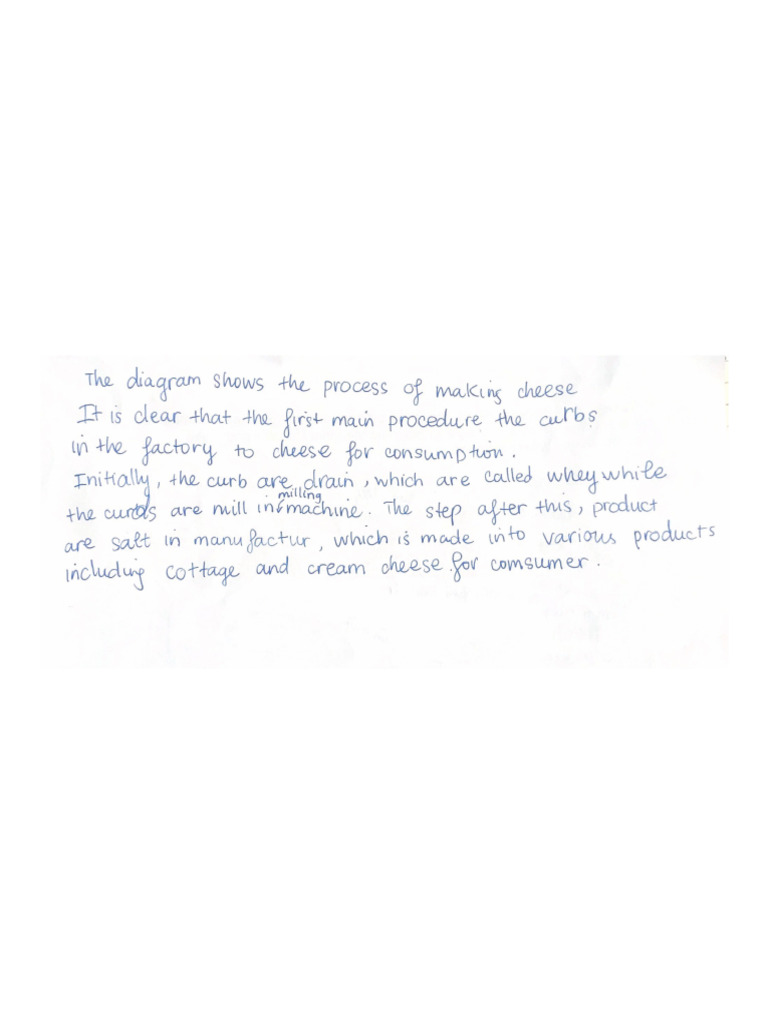 The diagram shows the process of making cheese
It is clear that the first main procedure the curbs
in the factory to cheese for consumption.
Initially, the curb are drain, which are called whey while
the curds are mill in milling machine. The step after this, product
are salt in manufactur, which is made into various products
including cottage and cream cheese for comsumer.